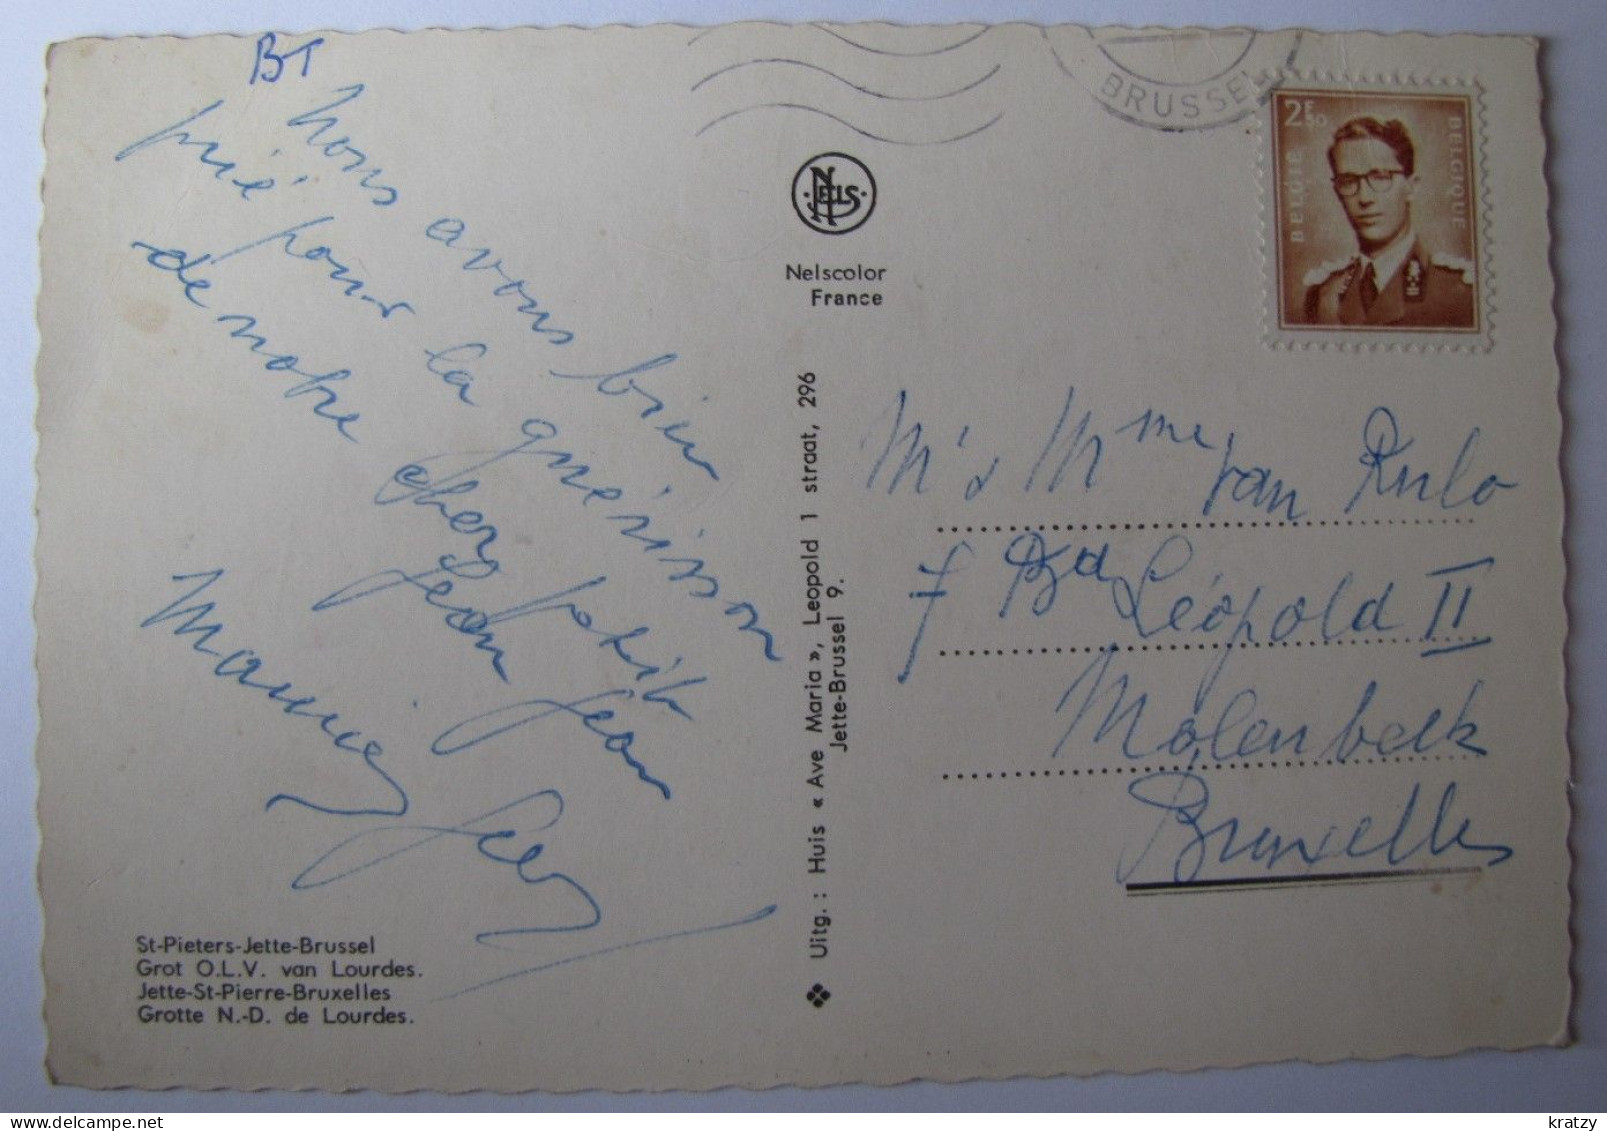 BT
Nous avons bien
prié pour la guérison
de notre cher petit
Jean Jean
Mamie
BRUSSEL
2F50
BELGIE
BELGIQUE
NELS
Nelscolor
France
Mr & Mme Van Rulo
7 Bd Léopold II
Molenbeek
Bruxelles
Uitg. : Huis « Ave Maria », Leopold 1 straat, 296
Jette-Brussel 9.
St-Pieters-Jette-Brussel
Grot O.L.V. van Lourdes.
Jette-St-Pierre-Bruxelles
Grotte N.-D. de Lourdes.
kratzy